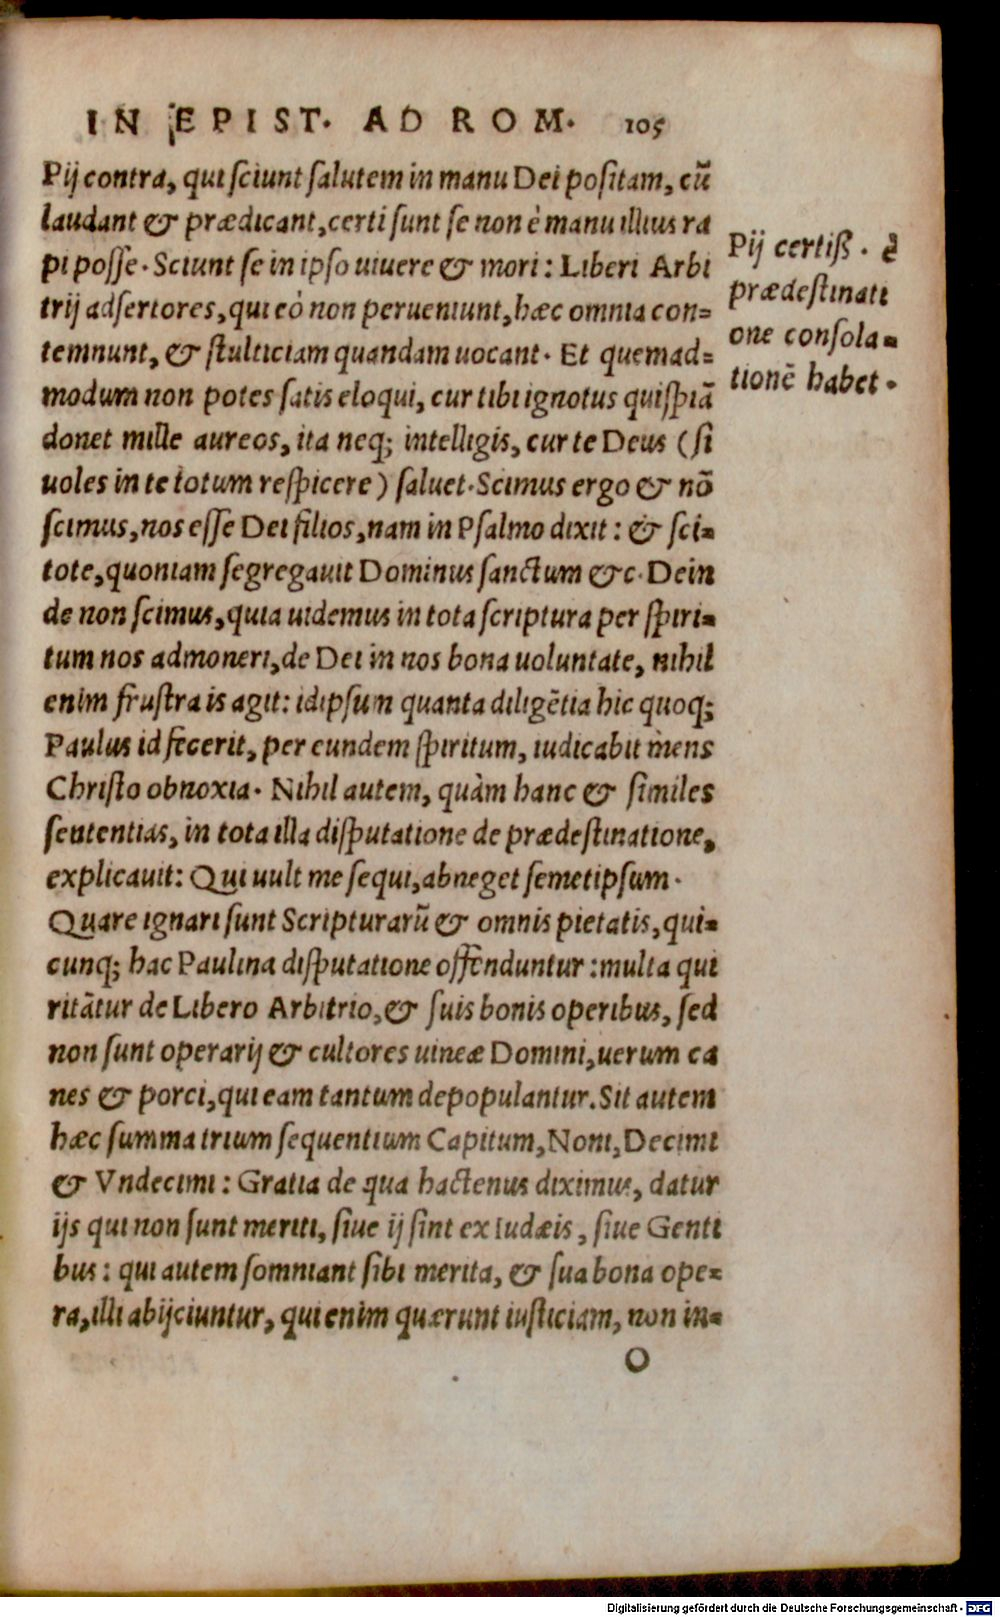 IN EPIST. AD ROM. 105
Pij contra, qui sciunt salutem in manu Dei positam, cũ
laudant & prædicant, certi sunt se non è manu illius ra
pi posse. Sciunt se in ipso uiuere & mori: Liberi Arbi
trij adsertores, qui eò non perueniunt, hæc omnia con=
temnunt, & stulticiam quandam uocant. Et quemad=
modum non potes satis eloqui, cur tibi ignotus quispiã
donet mille aureos, ita neq; intelligis, cur te Deus (si
uoles in te totum respicere) saluet. Scimus ergo & nõ
scimus, nos esse Dei filios, nam in Psalmo dixit: & sci=
tote, quoniam segregauit Dominus sanctum &c. Dein
de non scimus, quia uidemus in tota scriptura per spiri=
tum nos admoneri, de Dei in nos bona uoluntate, nihil
enim frustra is agit: idipsum quanta diligẽtia hic quoq;
Paulus id fecerit, per eundem spiritum, iudicabit mens
Christo obnoxia. Nihil autem, quàm hanc & similes
sententias, in tota illa disputatione de prædestinatione,
explicauit: Qui uult me sequi, abneget semetipsum.
Quare ignari sunt Scripturarũ & omnis pietatis, qui=
cunq; hac Paulina disputatione offenduntur: multa qui
ritãtur de Libero Arbitrio, & suis bonis operibus, sed
non sunt operarij & cultores uineæ Domini, uerum ca
nes & porci, qui eam tantum depopulantur. Sit autem
hæc summa trium sequentium Capitum, Noni, Decimi
& Vndecimi: Gratia de qua hactenus diximus, datur
ijs qui non sunt meriti, siue ij sint ex Iudæis, siue Genti
bus: qui autem somniant sibi merita, & sua bona ope=
ra, illi abijciuntur, qui enim quærunt iusticiam, non in=
O
Pij certiß. è
prædestinati
one consola=
tionẽ habet.
Digitalisierung gefördert durch die Deutsche Forschungsgemeinschaft - DFG